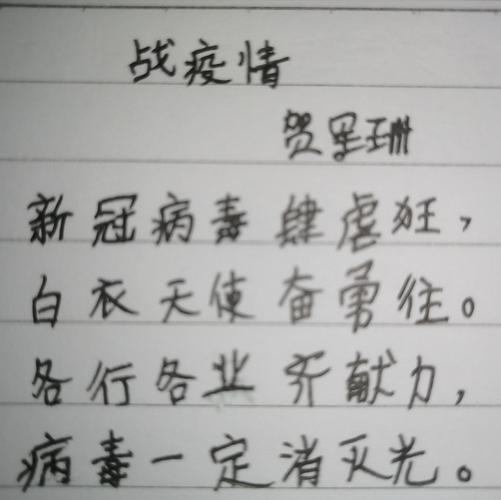 战疫情
贺星珊
新冠病毒肆虐狂，
白衣天使奋勇往。
各行各业齐献力，
病毒一定消灭光。